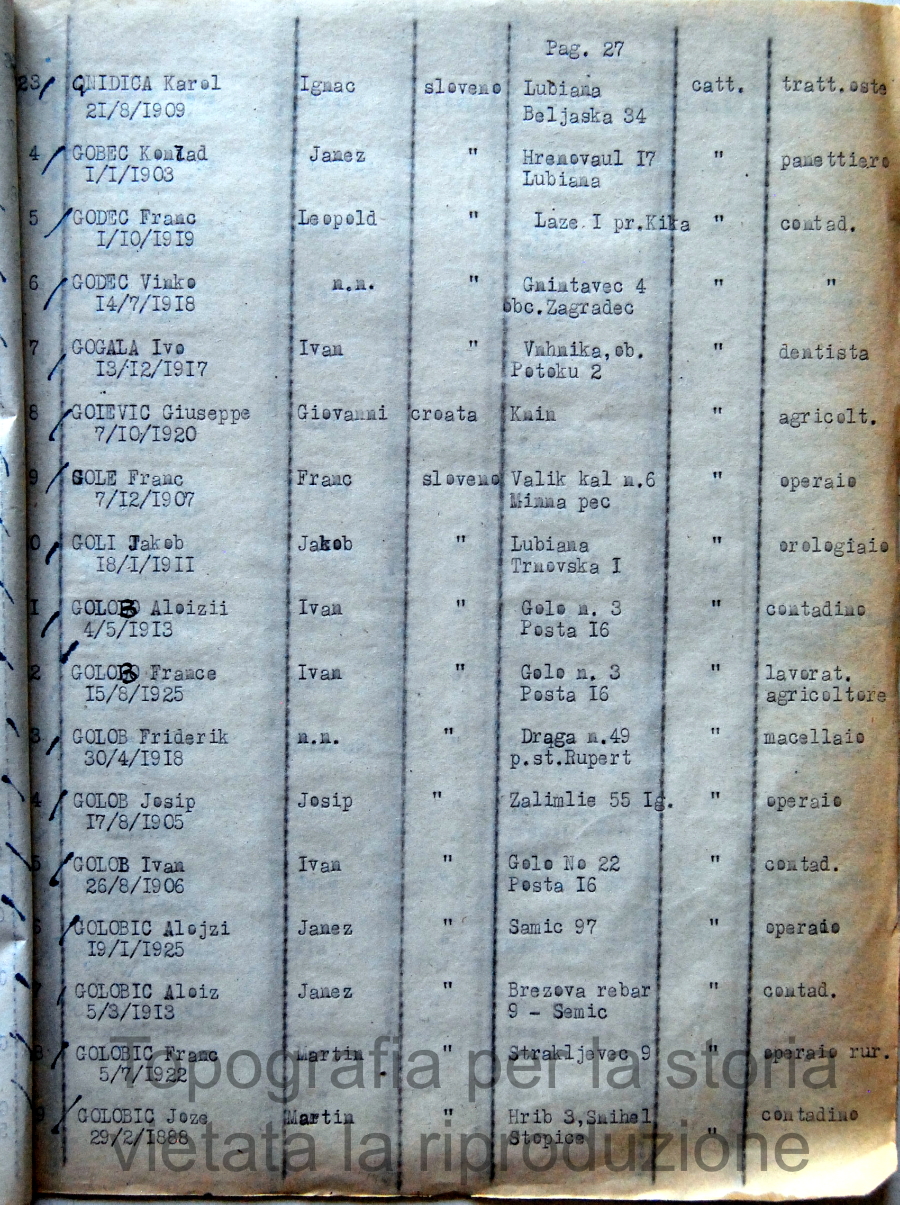 Pag. 27
23 GNIDICA Karol Ignac sloveno Lubiana catt. tratt.oste
21/8/1909 Beljaska 34
4 GOBEC Konrad Janez " Hrenovaul I7 " panettiere
I/I/I903 Lubiana
5 GODEC Franc Leopold " Laze I pr.Kika " contad.
I/IO/I9I9
6 GODEC Vinko n.n. " Gmintavec 4 " "
I4/7/I9I8 obc.Zagradec
7 GOGALA Ivo Ivan " Vnhnika,ob. " dentista
I3/I2/I9I7 Potoku 2
8 GOIEVIC Giuseppe Giovanni croata Knin " agricolt.
7/IO/I920
9 GOLE Franc Franc sloveno Valik kal n.6 " operaio
7/I2/I907 Minna pec
0 GOLI Jakob Jakob " Lubiana " orologiaio
I8/I/I9II Trnovska I
I GOLOB Aloizii Ivan " Golo n. 3 " contadino
4/5/I9I3 Posta I6
2 GOLOB France Ivan " Golo n. 3 " lavorat.
I5/8/I925 Posta I6 agricoltore
3 GOLOB Friderik n.n. " Draga n.49 " macellaio
30/4/I9I8 p.st.Rupert
4 GOLOB Josip Josip " Zalimlie 55 Ig. " operaio
I7/8/I905
5 GOLOB Ivan Ivan " Golo No 22 " contad.
26/8/I906 Posta I6
6 GOLOBIC Alojzi Janez " Samic 97 " operaio
I9/I/I925
7 GOLOBIC Aloiz Janez " Brezova rebar " contad.
5/3/I9I3 9 - Semic
8 GOLOBIC Franc Martin " Strakljevec 9 " operaio rur.
5/7/I922
9 GOLOBIC Joze Martin " Hrib 3,Smihel contadino
29/2/I888 Stopice "
Topografia per la storia
vietata la riproduzione